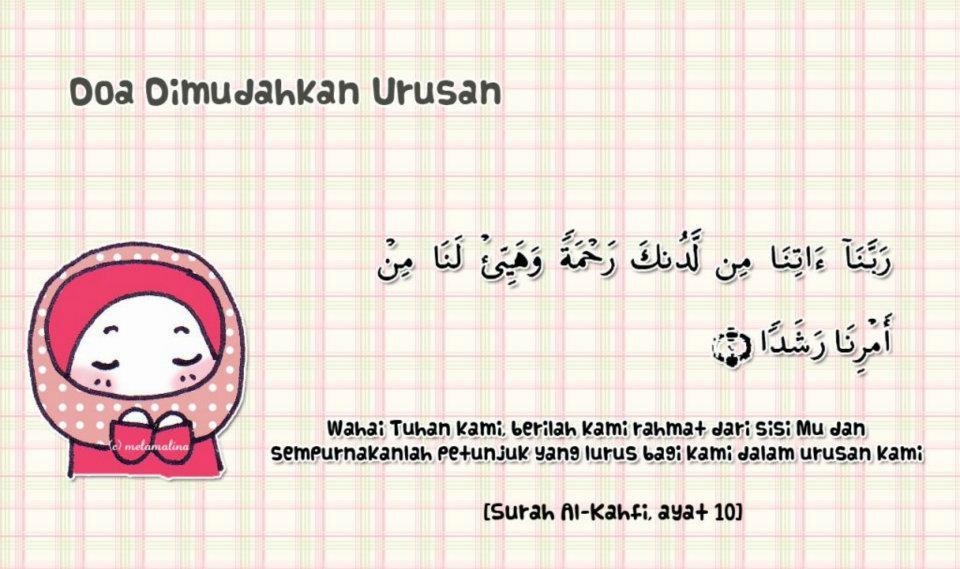 Doa Dimudahkan Urusan
رَبَّنَآ ءَاتِنَا مِن لَّدُنكَ رَحْمَةً وَهَيِّئْ لَنَا مِنْ
أَمْرِنَا رَشَدًا
(c) melamalina
Wahai Tuhan kami, berilah kami rahmat dari sisi Mu dan
sempurnakanlah petunjuk yang lurus bagi kami dalam urusan kami
[Surah Al-Kahfi, ayat 10]